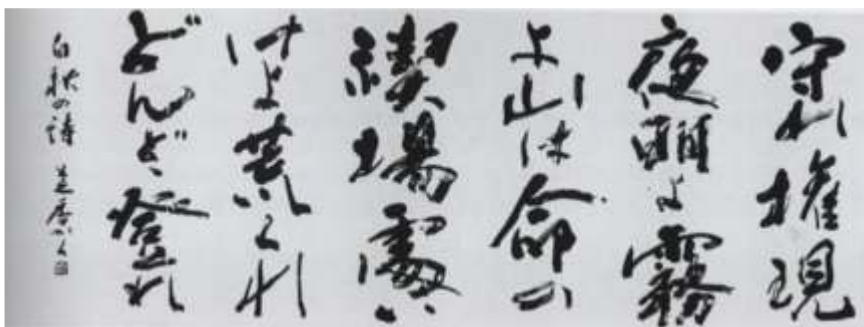 守れ権現
夜明よ霧
よ山は命の
禊場處い
けよ荒くれ
どんど登れ
白秋の詩